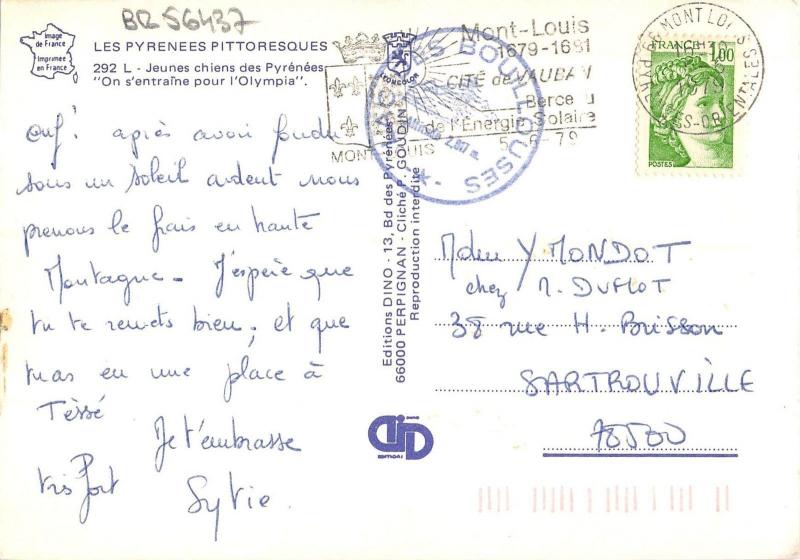 BR 56437
Image
de France
Imprimée
en France
LES PYRENEES PITTORESQUES
292 L - Jeunes chiens des Pyrénées
"On s'entraîne pour l'Olympia".
Mont-Louis
1679-1981
CITÉ de VAUBAN
Berceau
de l'Énergie Solaire
MONT LOUIS
LES BOUILLOUSES
MONT LOUIS
FRANCE 1,00
POSTES
ouf! après avoir fondu
sous un soleil ardent nous
prenons le frais en haute
Montagne - J'espère que
tu te remets bien, et que
tu as eu une place à
Tessé
Je t'embrasse
très fort
Sylvie.
Editions DINO - 13, Bd des Pyrénées
66000 PERPIGNAN - Cliché P. GOUDIN
Reproduction interdite
EDITIONS
Mdme Y MONDOT
chez M. DUFLOT
38 rue H. Brisson
SARTROUVILLE
78500